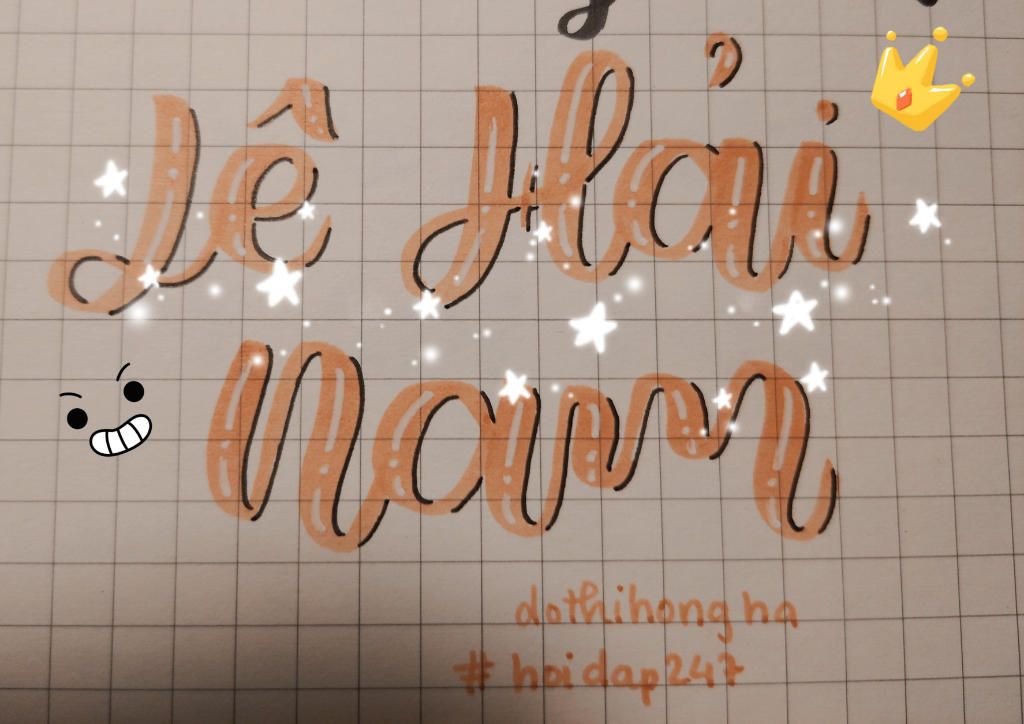 Lê Hải
Nam
dothihongha
#hoidap247